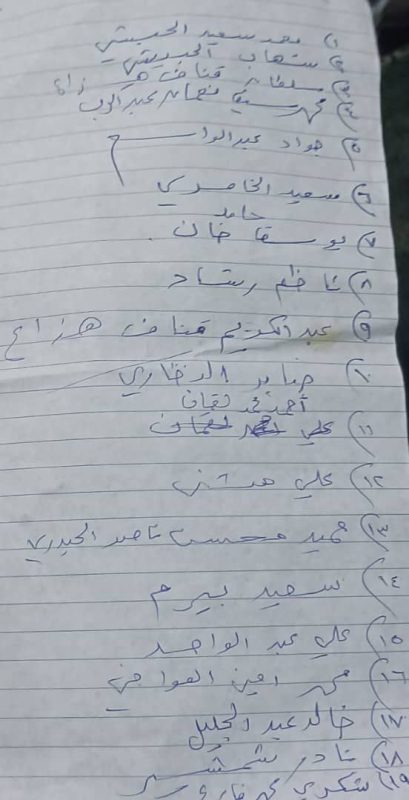 ١) محمد سعيد الحبيشي
٢) شهاب الحبيشي
٣) سلطان قناف هزاع
٤) محمد سيف نعمان عبدالرب
٥) جواد عبدالواسع
٦) سعيد الخامري
حامد
٧) يوسف خان
٨) ناظم رشاد
٩) عبدالكريم قناف هزاع
١٠) صابر الذخاري
أحمد محمد لقمان
١١) علي احمد لقمان
١٢) علي هدشن
١٣) حميد محسن ناصر الحيدري
١٤) سعيد بيرم
١٥) علي عبد الواحد
١٦) محمد امين العواضي
١٧) خالد عبد الجليل
١٨) نادر شمشير
١٩) شكري محمد فارع